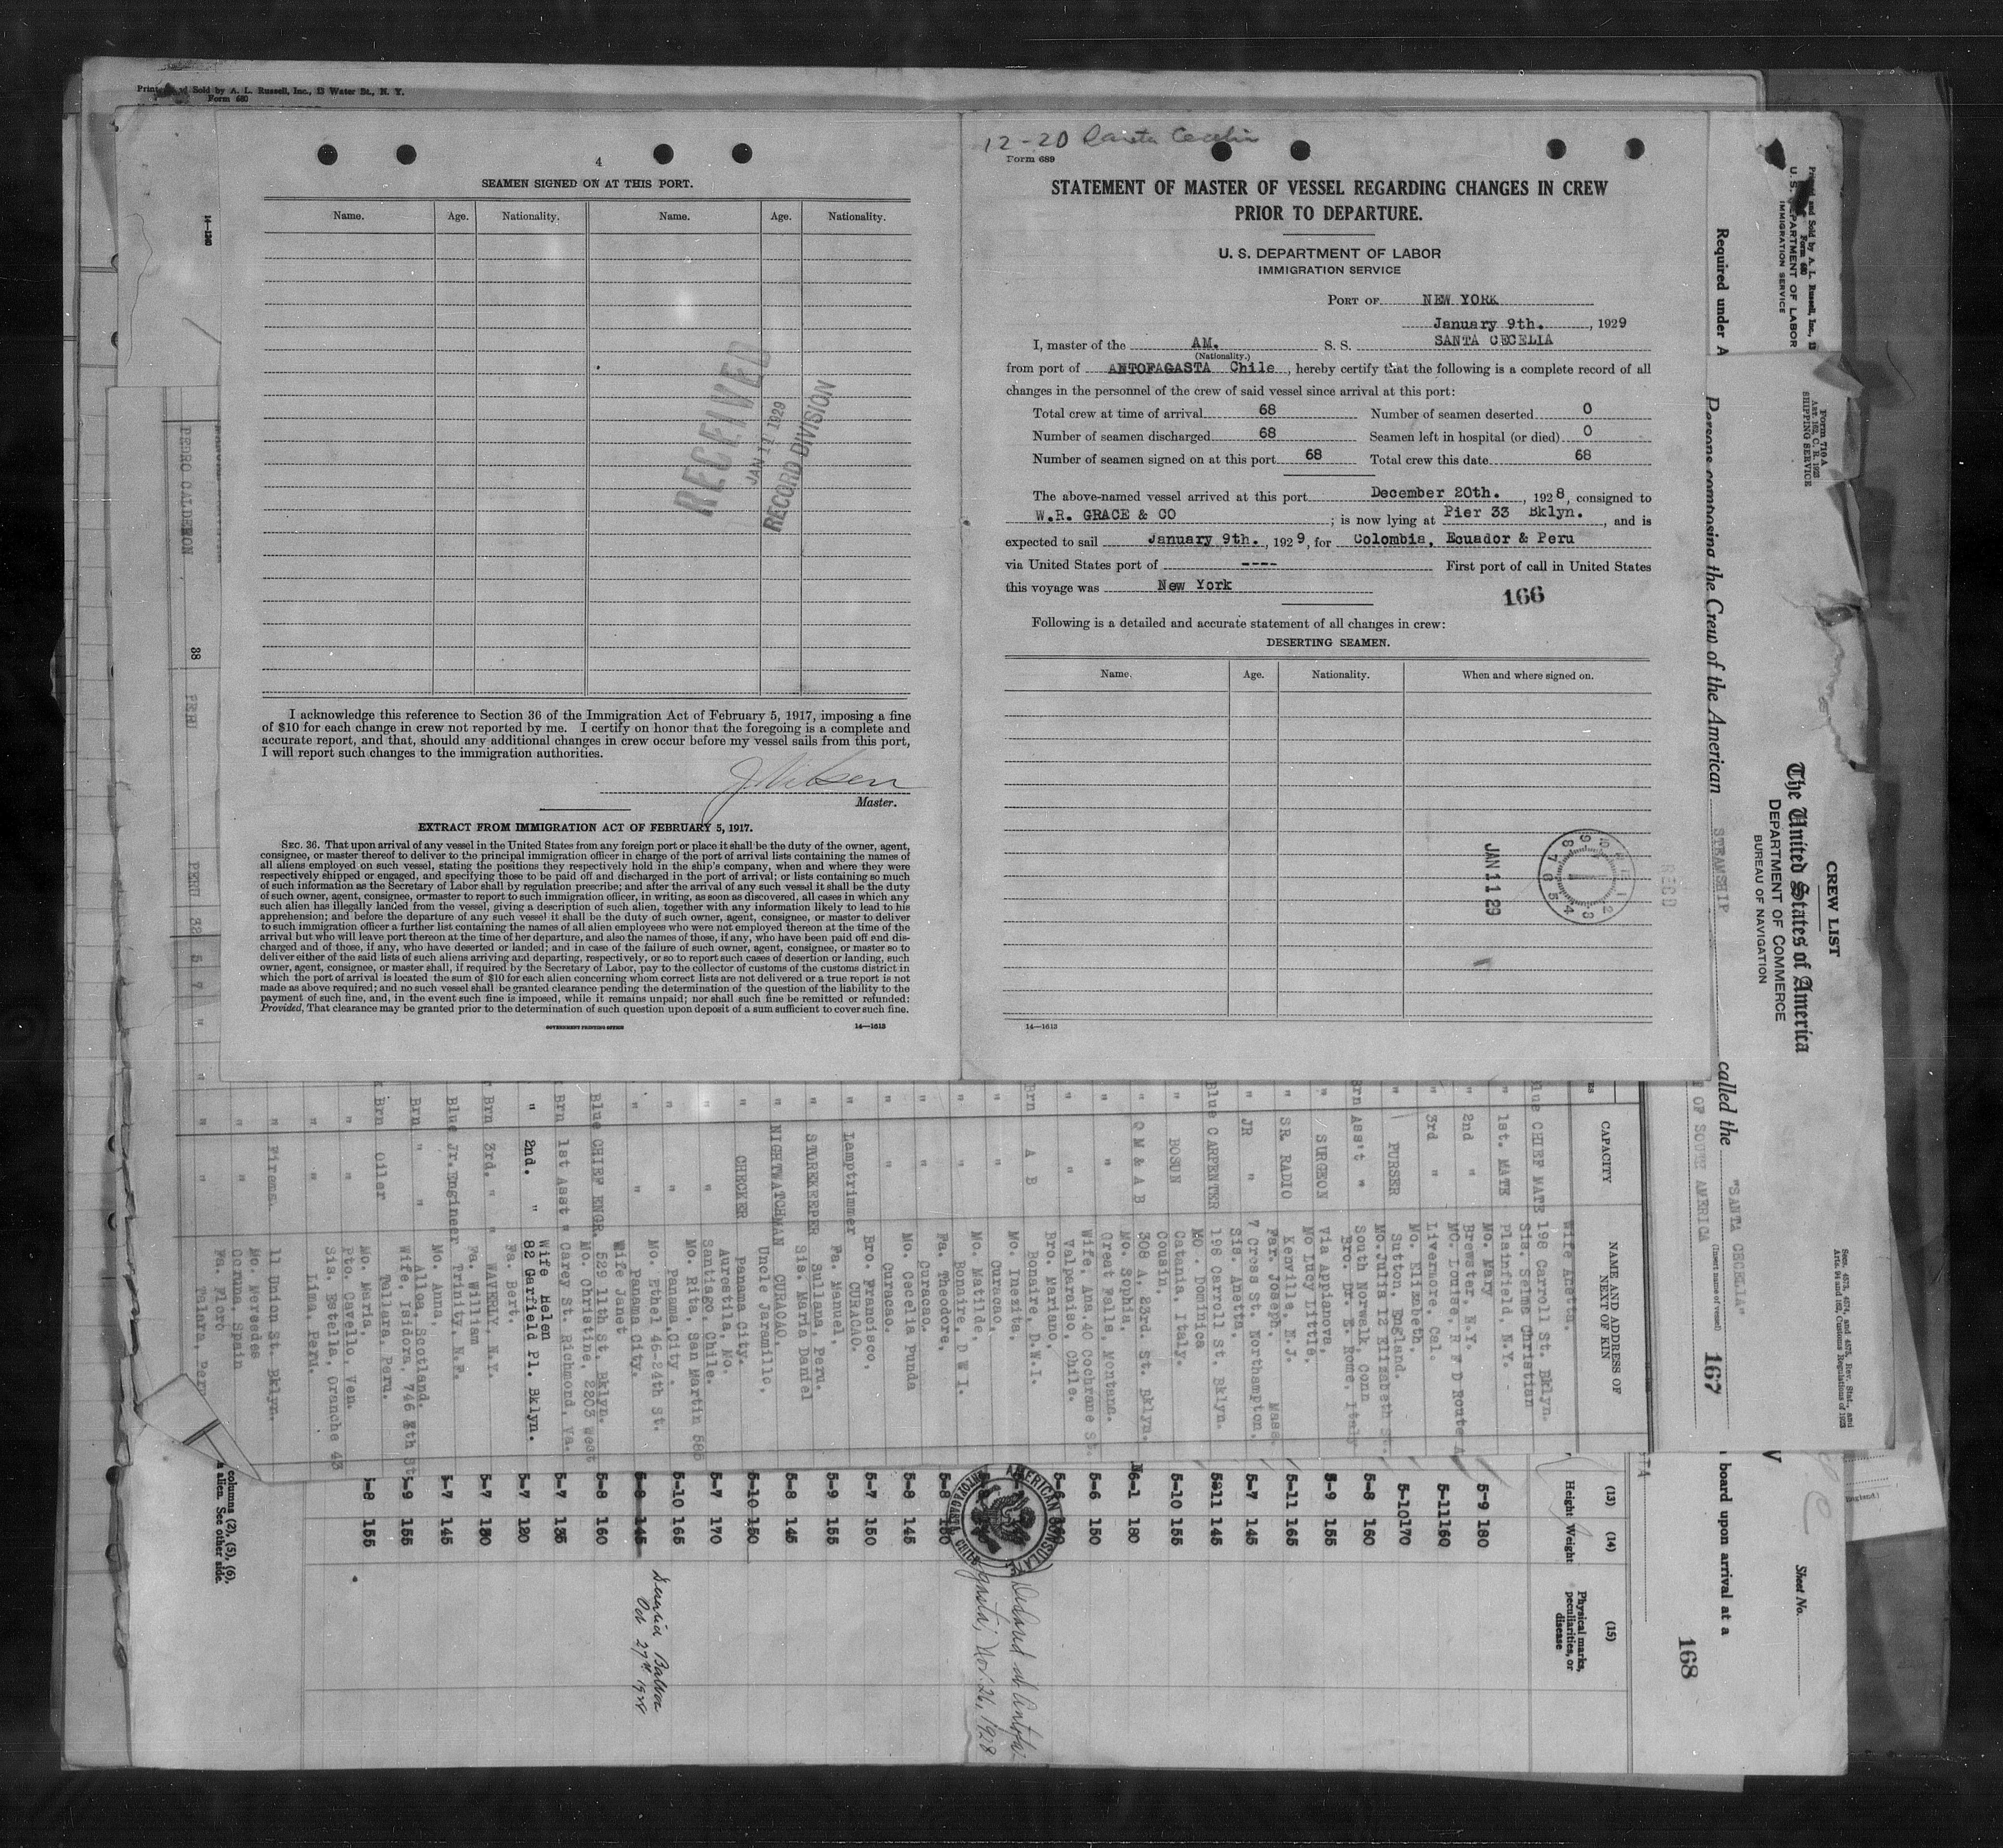 Sold by A. L. Russell, Inc., 13 Water St., N. Y.
Form 680
4
SEAMEN SIGNED ON AT THIS PORT.
Name. Age. Nationality. Name. Age. Nationality.
RECEIVED
JAN 11 1929
RECORD DIVISION
I acknowledge this reference to Section 36 of the Immigration Act of February 5, 1917, imposing a fine
of $10 for each change in crew not reported by me. I certify on honor that the foregoing is a complete and
accurate report, and that, should any additional changes in crew occur before my vessel sails from this port,
I will report such changes to the immigration authorities.
Master.
EXTRACT FROM IMMIGRATION ACT OF FEBRUARY 5, 1917.
SEC. 36. That upon arrival of any vessel in the United States from any foreign port or place it shall be the duty of the owner, agent,
consignee, or master thereof to deliver to the principal immigration officer in charge of the port of arrival lists containing the names of
all aliens employed on such vessel, stating the positions they respectively hold in the ship's company, when and where they were
respectively shipped or engaged, and specifying those to be paid off and discharged in the port of arrival; or lists containing so much
of such information as the Secretary of Labor shall by regulation prescribe; and after the arrival of any such vessel it shall be the duty
of such owner, agent, consignee, or master to report to such immigration officer, in writing, as soon as discovered, all cases in which any
such alien has illegally landed from the vessel, giving a description of such alien, together with any information likely to lead to his
apprehension; and before the departure of any such vessel it shall be the duty of such owner, agent, consignee, or master to deliver
to such immigration officer a further list containing the names of all alien employees who were not employed thereon at the time of the
arrival but who will leave port thereon at the time of her departure, and also the names of those, if any, who have been paid off and dis-
charged and of those, if any, who have deserted or landed; and in case of the failure of such owner, agent, consignee, or master so to
deliver either of the said lists of such aliens arriving and departing, respectively, or so to report such cases of desertion or landing, such
owner, agent, consignee, or master shall, if required by the Secretary of Labor, pay to the collector of customs of the customs district in
which the port of arrival is located the sum of $10 for each alien concerning whom correct lists are not delivered or a true report is not
made as above required; and no such vessel shall be granted clearance pending the determination of the question of the liability to the
payment of such fine, and, in the event such fine is imposed, while it remains unpaid; nor shall such fine be remitted or refunded:
Provided, That clearance may be granted prior to the determination of such question upon deposit of a sum sufficient to cover such fine.
GOVERNMENT PRINTING OFFICE 14—1613
12-20 Santa Cecelia
Form 689
STATEMENT OF MASTER OF VESSEL REGARDING CHANGES IN CREW
PRIOR TO DEPARTURE.
U. S. DEPARTMENT OF LABOR
IMMIGRATION SERVICE
PORT OF NEW YORK
January 9th., 1929
I, master of the AM. S. S. SANTA CECELIA
(Nationality.)
from port of ANTOFAGASTA Chile, hereby certify that the following is a complete record of all
changes in the personnel of the crew of said vessel since arrival at this port:
Total crew at time of arrival 68 Number of seamen deserted 0
Number of seamen discharged 68 Seamen left in hospital (or died) 0
Number of seamen signed on at this port 68 Total crew this date 68
The above-named vessel arrived at this port December 20th., 1928, consigned to
W.R. GRACE & CO; is now lying at Pier 33 Bklyn., and is
expected to sail January 9th., 1929, for Colombia, Ecuador & Peru
via United States port of ---- First port of call in United States
this voyage was New York
166
Following is a detailed and accurate statement of all changes in crew:
DESERTING SEAMEN.
Name. Age. Nationality. When and where signed on.
JAN 11 29
REC'D
14—1613
PEDRO CALDERON 38 PERU
PERU 38 5 7
Required under A
Persons composing the Crew of the American STEAMSHIP called the "SANTA CECELIA"
(Insert name of vessel)
OF SOUTH AMERICA
167
Printed and Sold by A. L. Russell, Inc., 13
Form 680
U. S. DEPARTMENT OF LABOR
IMMIGRATION SERVICE
Form 710 A
Art. 162, C. R. 1923
SHIPPING SERVICE
CREW LIST
The United States of America
DEPARTMENT OF COMMERCE
BUREAU OF NAVIGATION
Secs. 4573, 4574, and 4575, Rev. Stat., and
Arts. 94 and 162, Customs Regulations of 1923
CAPACITY
NAME AND ADDRESS OF
NEXT OF KIN
Wife Anetta
CHIEF MATE 198 Carroll St. Bklyn.
Sis. Selma Christian
1st. MATE Plainfield, N.Y.
Mo. Mary
2nd " Brewster, N.Y.
Mo. Louise, R F D Route
3rd " Livermore, Cal.
Mo. Elizabeth.
PURSER Sutton, England.
Mo. Julia 12 Elizabeth St.
Brn Ass't " South Norwalk, Conn
Bro. Dr. E. Rome, Italy
SURGEON Via Appianova,
Mo Lucy Little,
SR. RADIO Kenville, N.J.
Far. Joseph, Mass.
JR " 7 Cross St. Northampton.
Sis. Anetta.
Blue CARPENTER 198 Carroll St. Bklyn.
MO. Dominica
BOSUN Catania, Italy.
Cousin,
Q M & A B 308 A. 23rd. St. Bklyn.
Mo. Sophia.
" Great Falls, Montana.
Wife, Ana. 40 Cochrane St.
" Valparaiso, Chile.
Bro. Mariano.
Brn A B Bonaire, D.W.I.
Mo. Inezita.
" Curacao.
Mo. Matilde.
" Bonaire, D W I.
Fa. Theodore.
" Curacao.
Mo. Cecelia Punda
" Curacao.
Bro. Francisco.
Lamptrimmer CURACAO.
Fa. Manuel.
STOREKEEPER Sulana, Peru.
Sis. Maria Daniel
NIGHTWATCHMAN CURACAO.
Uncle Jaramillo.
CHECKER Panama City.
Aurestila, Mo.
" Santiago, Chile.
Mo. Rita, San Martin 585
" Panama City.
Mo. Ethel 46-24th St.
" Panama City.
Wife Janet
Blue CHIEF ENGR. 529 11th St. Bklyn.
Mo. Christine, 2203 West
Brn 1st Asst " Carey St. Richmond, Va.
Wife Helen
" 2nd. " 82 Garfield Pl. Bklyn.
Fa. Bert.
Brn 3rd. " WAVERLY, N.Y.
Fa. William
Blue Jr. Engineer Trinity, N.F.
Mo. Anna.
Brn " Alloa, Scotland.
Wife, Isidora, 746 4th St
Brn Oiler Tallara, Peru.
Mo. Maria,
" Pto. Cavello, Ven.
Sis. Estella, Oranche 43
" Lima, Peru.
Fireman 11 Union St. Bklyn.
Mo. Mercedes
" Coruna, Spain
Fa. Floro
" Talara, Peru
columns (2), (5), (6),
alien. See other side.
board upon arrival at a
Sheet No.
168
(13) (14) (15)
Height Weight Physical marks,
peculiarities, or
disease
5-9 180
5-11 160
5-10 170
5-8 160
5-9 155
5-11 165
5-7 145
5-11 145
5-10 155
6-1 180
5-6 150
5-8 145
5-7 150
5-9 155
5-8 145
5-10 150
5-7 170
5-10 165
5-8 145
5-8 160
5-7 135
5-7 120
5-7 130
5-7 145
5-9 155
5-8 155
AMERICAN CONSULATE
ANTOFAGASTA, CHILE
Nov. 26, 1928
Balboa
Oct 27th 1928